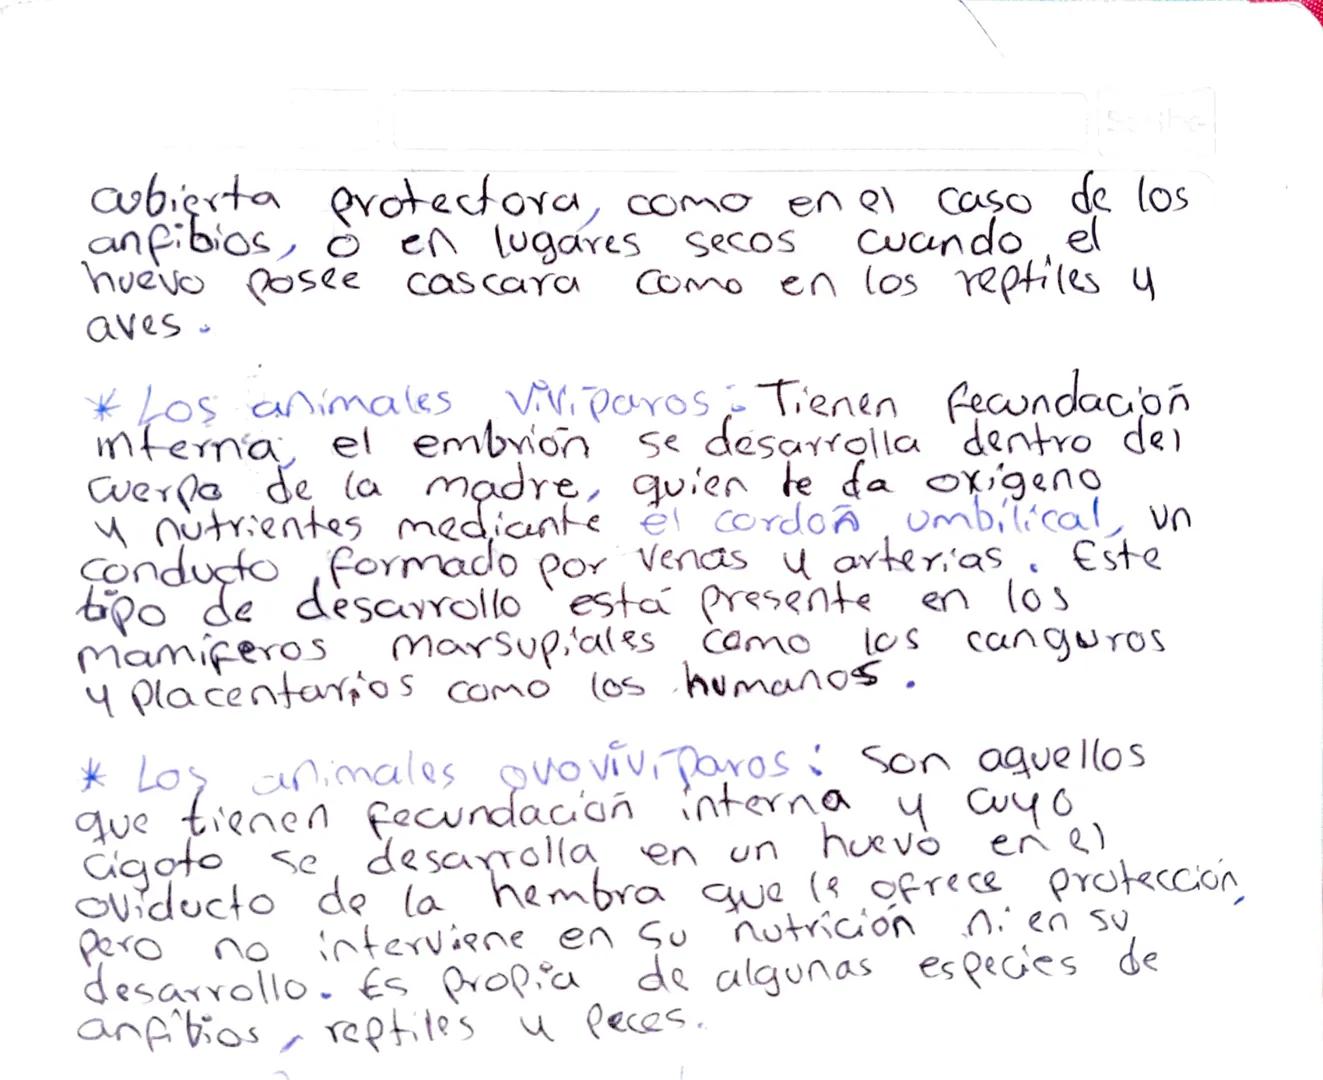 cubierta protectora, como en el caso de los
anfibios, o en lugares secos cuando el
huevo posee cascara como en los reptiles y
aves.
* Los animales vivíparos: Tienen fecundación
interna, el embrión se desarrolla dentro del
cuerpo de la madre, quien le da oxígeno
y nutrientes mediante el cordón umbilical, un
conducto formado por venas y arterias. Este
tipo de desarrollo está presente en los
mamíferos marsupiales como los canguros
y placentarios como los humanos.
* Los animales ovovivíparos: Son aquellos
que tienen fecundación interna y cuyo
cigoto se desarrolla en un huevo en el
oviducto de la hembra que le ofrece protección,
pero no interviene en su nutrición ni en su
desarrollo. Es propia de algunas especies de
anfibios, reptiles y peces.